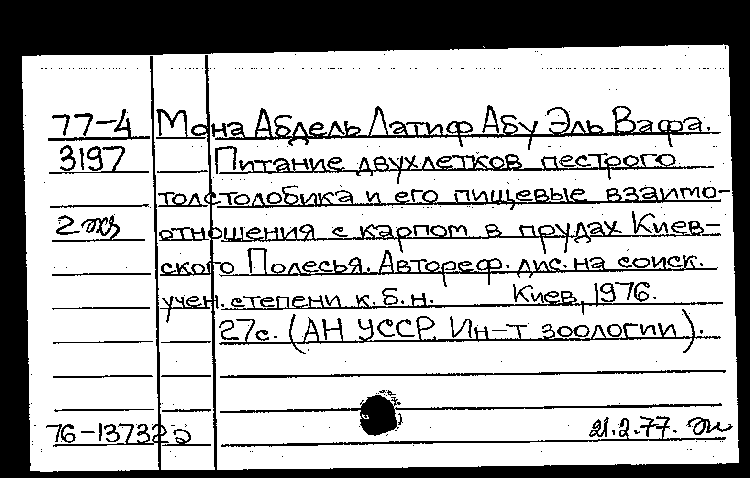 77-4 Мона Абдель Латиф Абу Эль Вафа.
3197 Питание двухлетков пестрого
толстолобика и его пищевые взаимо-
2 экз отношения с карпом в прудах Киев-
ского Полесья. Автореф. дис. на соиск.
учен. степени к.б.н. Киев, 1976.
27с. (АН УССР. Ин-т зоологии).
76-13732 21.2.77.